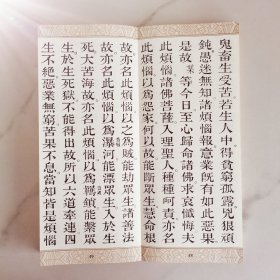 鬼畜生受苦若生人中得貧窮孤露兇狠頑
鈍愚迷無知諸煩惱報意業既有如此惡果
是故某等今日至心歸命諸佛求哀懺悔夫
此煩惱諸佛菩薩入理聖人種種呵責亦名
此煩惱以為怨家何以故能斷眾生慧命根
故亦名此煩惱以之為賊能劫眾生諸善法
故亦名此煩惱以為瀑河能漂眾生入於生
死大苦海故亦名此煩惱以為羈鎖能繫眾
生於生死獄不能得出故所以六道牽連四
生不絕惡業無窮苦果不息當知皆是煩惱